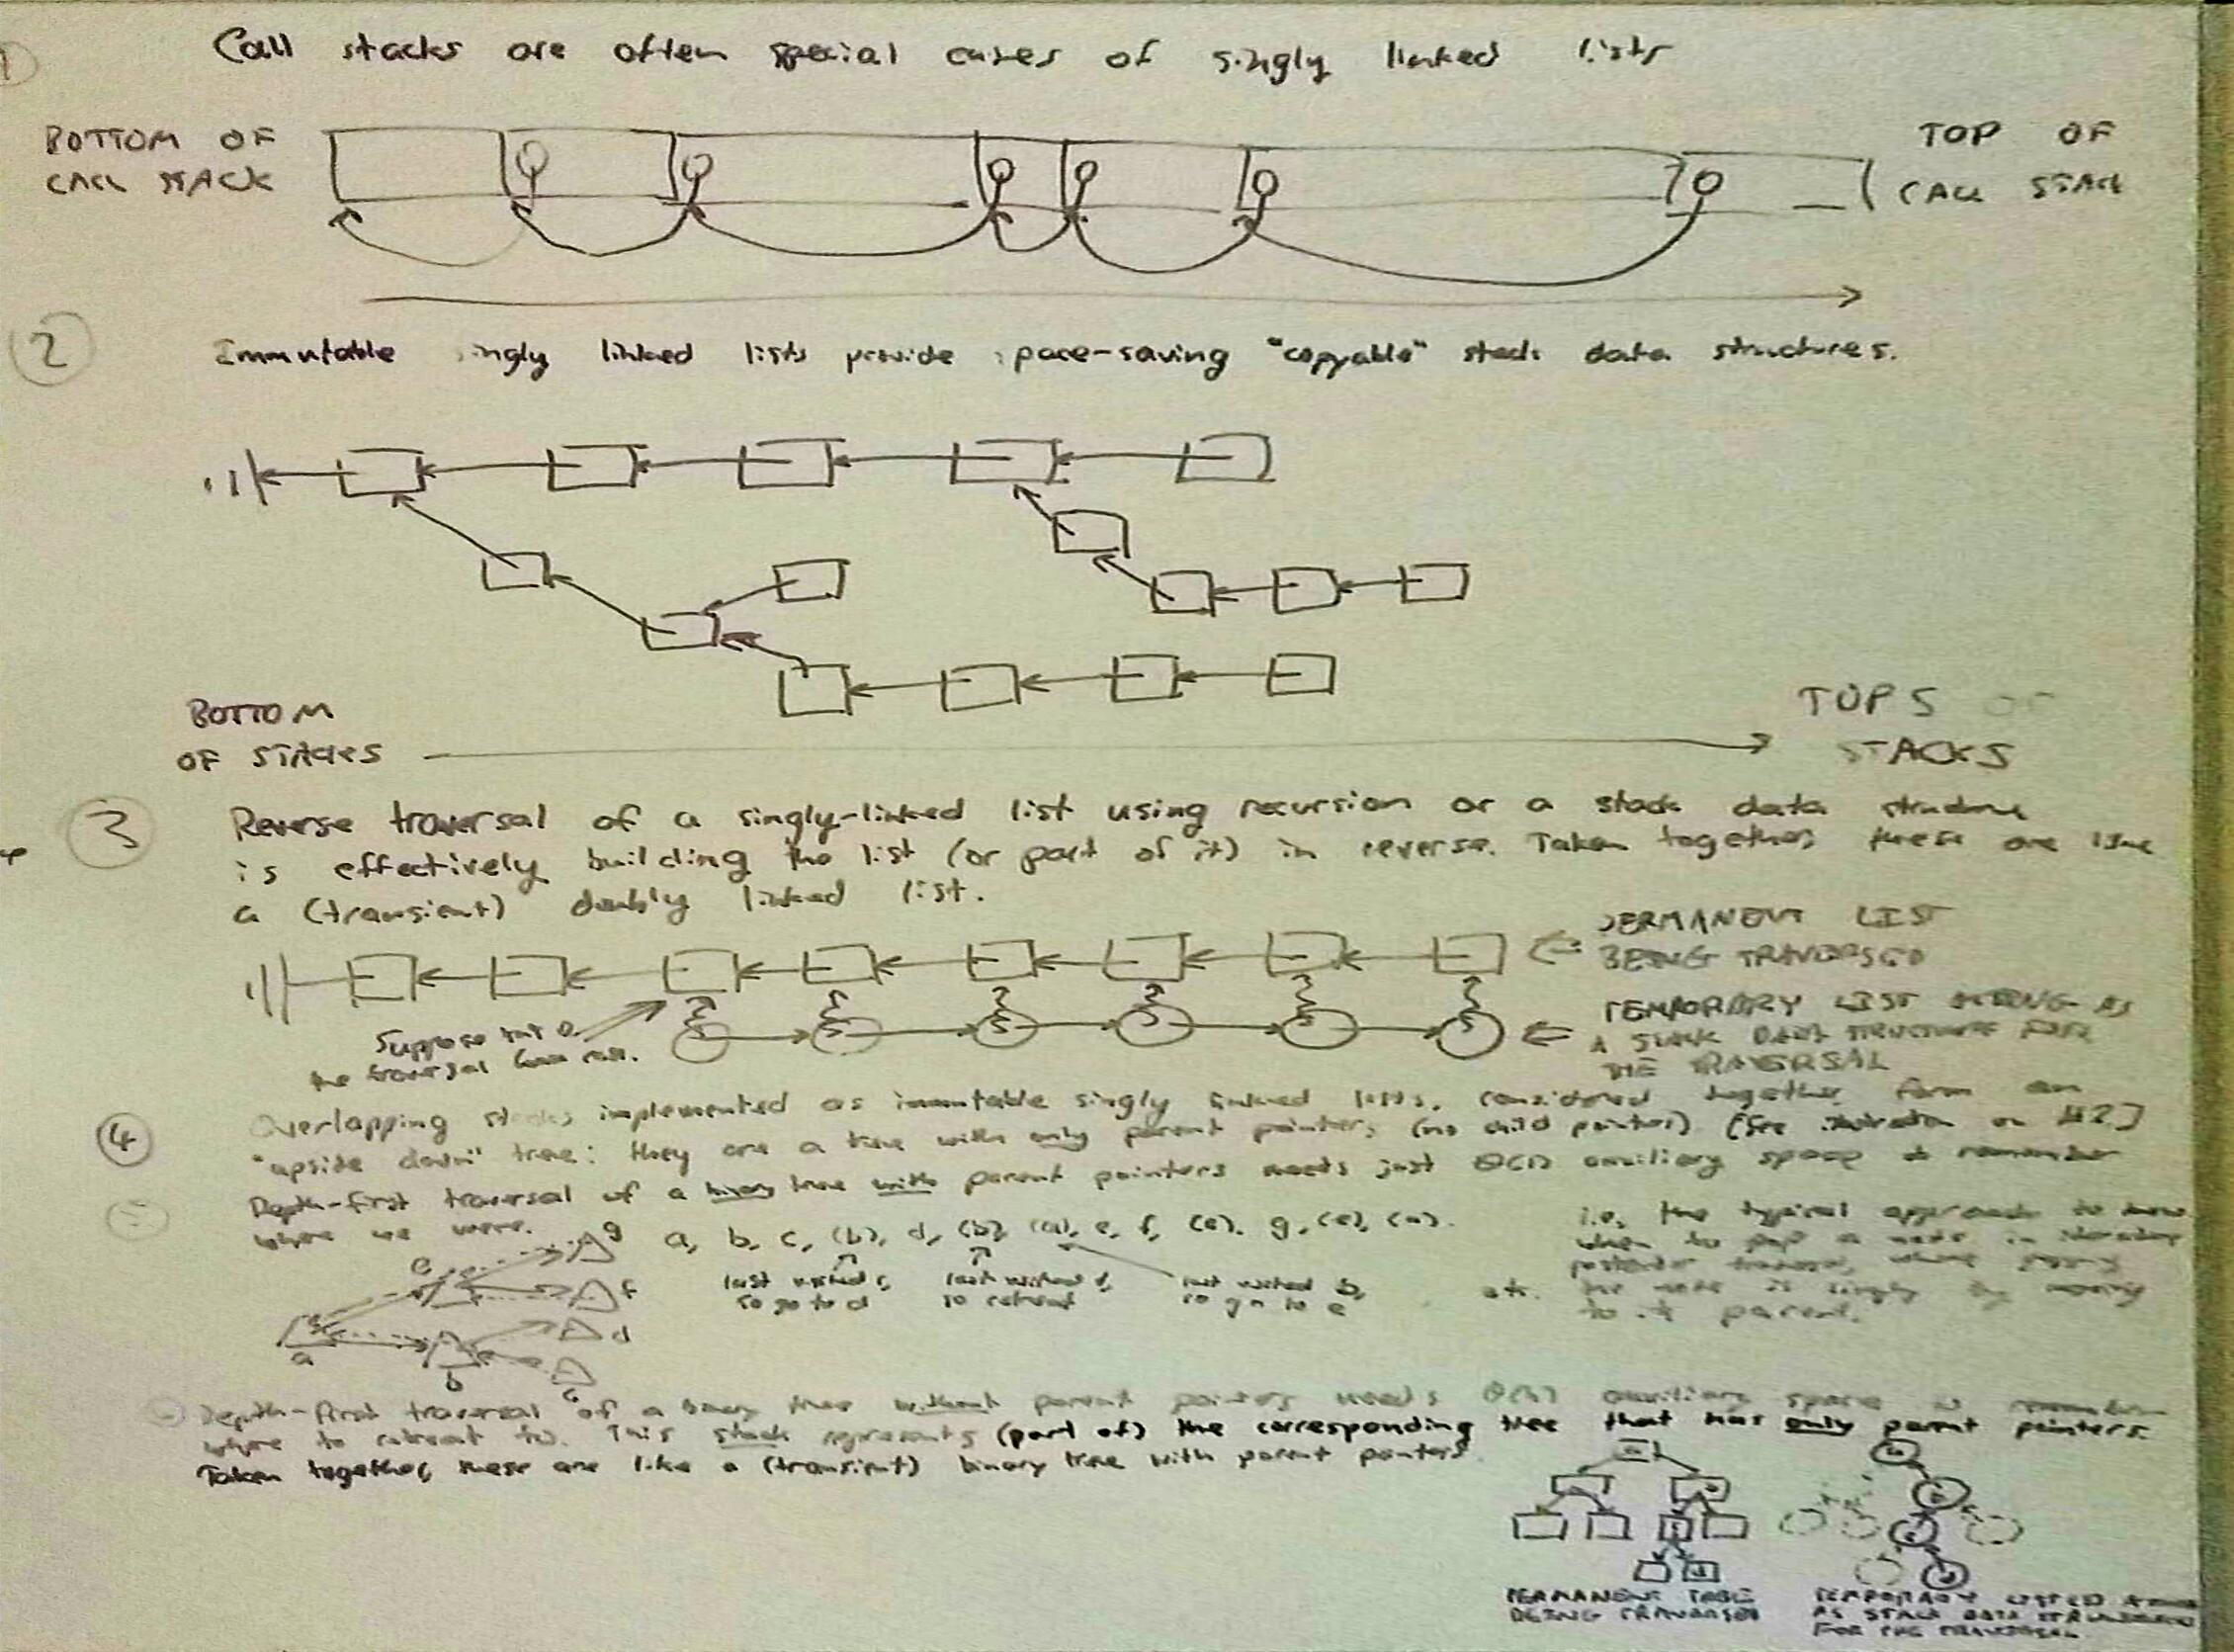 1
Call stacks are often special cases of singly linked lists
BOTTOM OF
CALL STACK
TOP OF
CALL STACK
2
Immutable singly linked lists provide space-saving "copyable" stack data structures.
BOTTOM
OF STACKS
TOPS OF
STACKS
3
Reverse traversal of a singly-linked list using recursion or a stack data structure
is effectively building the list (or part of it) in reverse. Taken together, these are like
a (transient) doubly linked list.
PERMANENT LIST
BEING TRAVERSED
Suppose
the traversal
TEMPORARY LIST ACTING AS
A STACK DATA STRUCTURE FOR
THE TRAVERSAL
4
Overlapping stacks implemented as immutable singly linked lists, considered together, form an
"upside down" tree: they are a tree with only parent pointers (no child pointers) (See illustration on #2.)
5
Depth-first traversal of a binary tree with parent pointers needs just Θ(1) auxiliary space to remember
where we were.
a, b, c, (b), d, (b), (a), e, f, (e), g, (e), (a).
last visited c,
so go to d
last visited d,
so retreat
last visited b,
so go to e
etc.
i.e. the typical approach to know
when to pop a node in iterative
postorder traversal, where popping
the node is simply by moving
to it parent.
g
e
f
d
a
b
c
Depth-first traversal of a binary tree without parent pointers needs Θ(h) auxiliary space to remember
where to retreat to. This stack represents (part of) the corresponding tree that has only parent pointers.
Taken together, these are like a (transient) binary tree with parent pointers.
PERMANENT TREE
BEING TRAVERSED
TEMPORARY
AS STACK DATA STRUCTURE
FOR THE TRAVERSAL